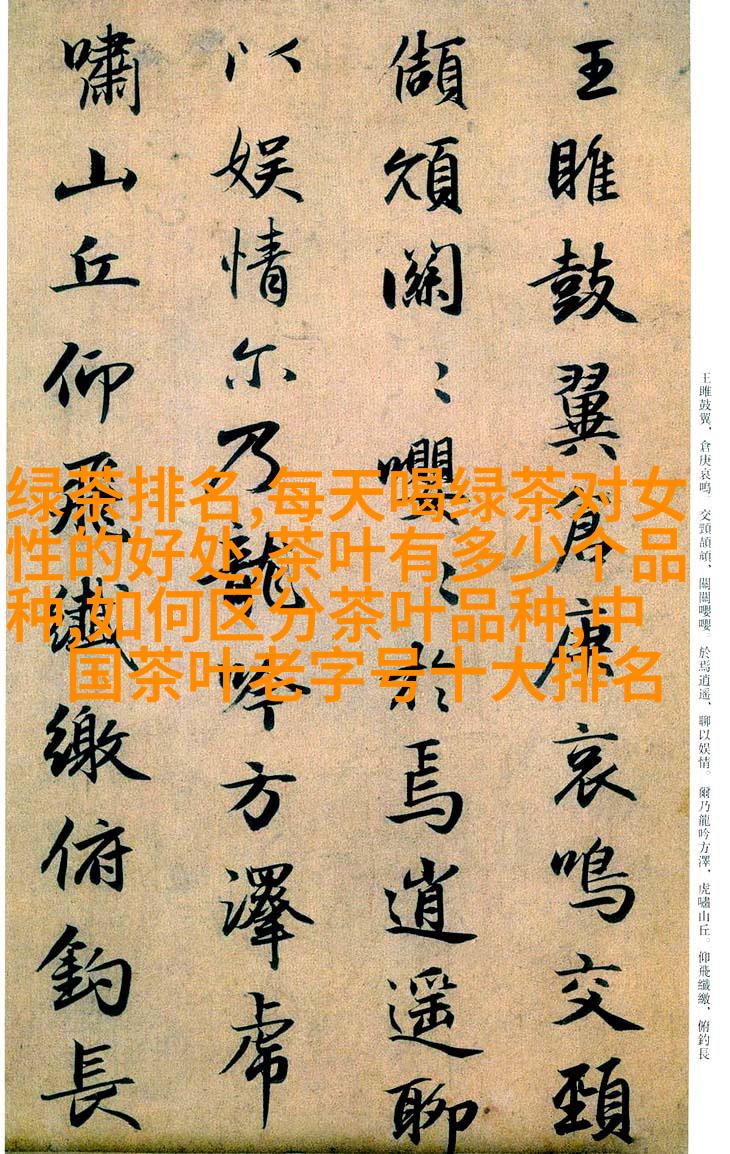 王雎鼓翼，倉庚哀鳴。交頸頡頏，關關嚶嚶。於焉逍遥，聊以娱情。爾乃龍吟方澤，虎嘯山丘。仰飛纖繳，俯釣長
王雎鼓翼倉庚哀鳴交頸
頡頏關〻嚶〻於焉逍遥聊
以娱情尓乃龍吟方澤虎
嘯山丘仰飛纖繳俯釣長
绿茶排名,每天喝绿茶对女
性的好处,茶叶有多少个品
种,如何区分茶叶品种,中
国茶叶老字号十大排名